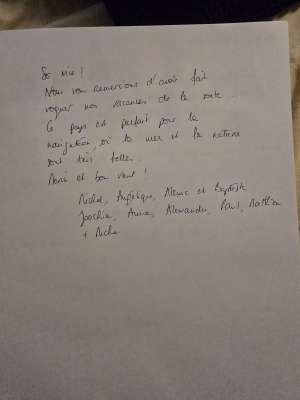 Nous vous remercions d'avoir fait
voguer nos vacances de la sorte...
Ce pays est parfait pour la
navigation, où la mer et la nature
sont très belles.
Merci et bon vent !
Michel, Angélique, et Baptiste
Joachim, Anne, Alexandre, Paul,
+